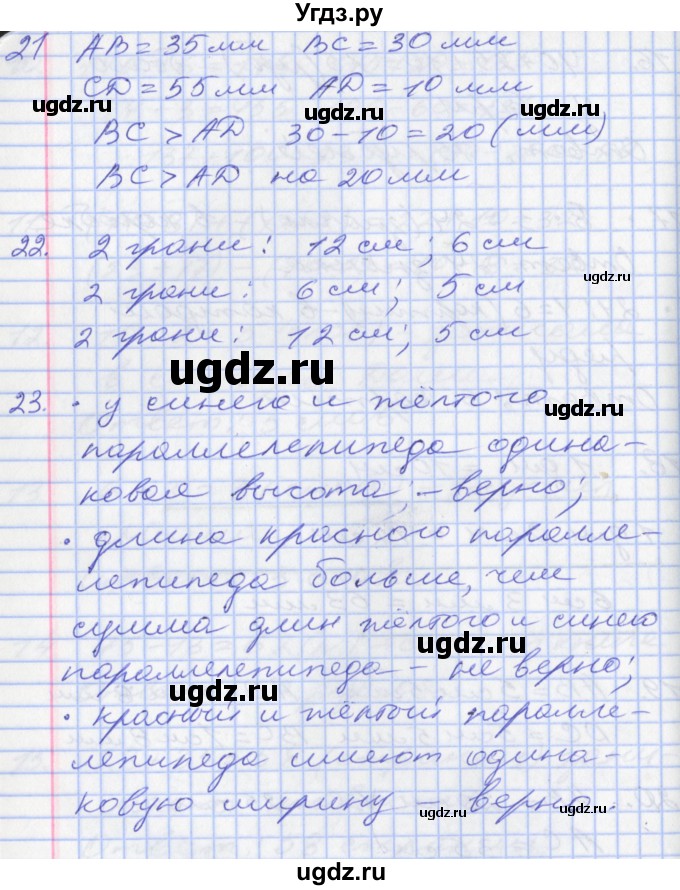 Угдз.ру
21 AB = 35 мм BC = 30 мм
CD = 55 мм AD = 10 мм
ugdz.ru ugdz.ru
BC > AD 30 - 10 = 20 (мм)
ugdz.ru
BC > AD на 20 мм
22. 2 грани: 12 см; 6 см
ugdz.ru
2 грани: 6 см; 5 см
2 грани: 12 см, 5 см
ugdz.ru
23. • у синего и жёлтого
ugdz.ru
параллелепипеда одина-
ковая высота; - верно;
ugdz.ru
• длина красного паралле-
лепипеда больше, чем
сумма длин жёлтого и синего
ugdz.ru
параллелепипеда - не верно;
ugdz.ru
• красный и жёлтый паралле-
лепипеда имеют одина-
ковую ширину - верно.
ugdz.ru ugdz.ru
ugdz.ru